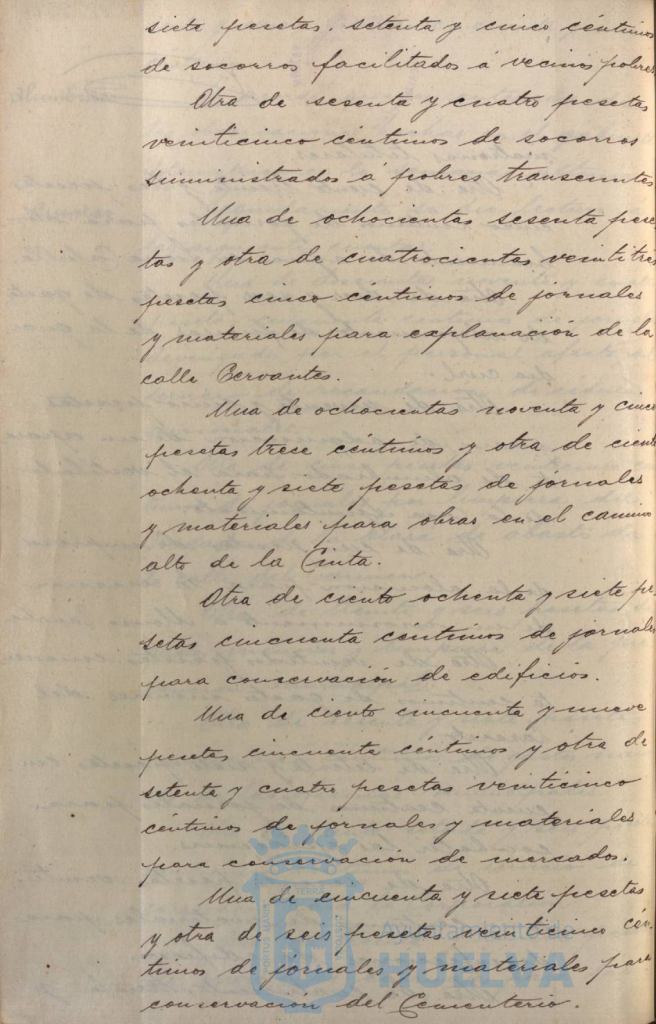 siete pesetas. setenta y cinco céntimos
de socorros facilitados á vecinos pobres
Otra de sesenta y cuatro pesetas
veinticinco céntimos de socorros
suministrados á pobres transeuntes
Una de ochocientas sesenta pese-
tas y otra de cuatrocientas veintitres
pesetas cinco céntimos de jornales
y materiales para explanación de la
calle Cervantes.
Una de ochocientas noventa y cinco
pesetas trece céntimos y otra de ciento
ochenta y siete pesetas de jornales
y materiales para obras en el camino
alto de la Cinta.
Otra de ciento ochenta y siete pe-
setas cincuenta céntimos de jornales
para conservación de edificios.
Una de ciento cincuenta y nueve
pesetas cincuenta céntimos y otra de
setenta y cuatro pesetas veinticinco
céntimos de jornales y materiales
para conservación de mercados.
Una de cincuenta y siete pesetas
y otra de seis pesetas veinticinco cén-
timos de jornales y materiales para
conservación del Cementerio.
HUELVA